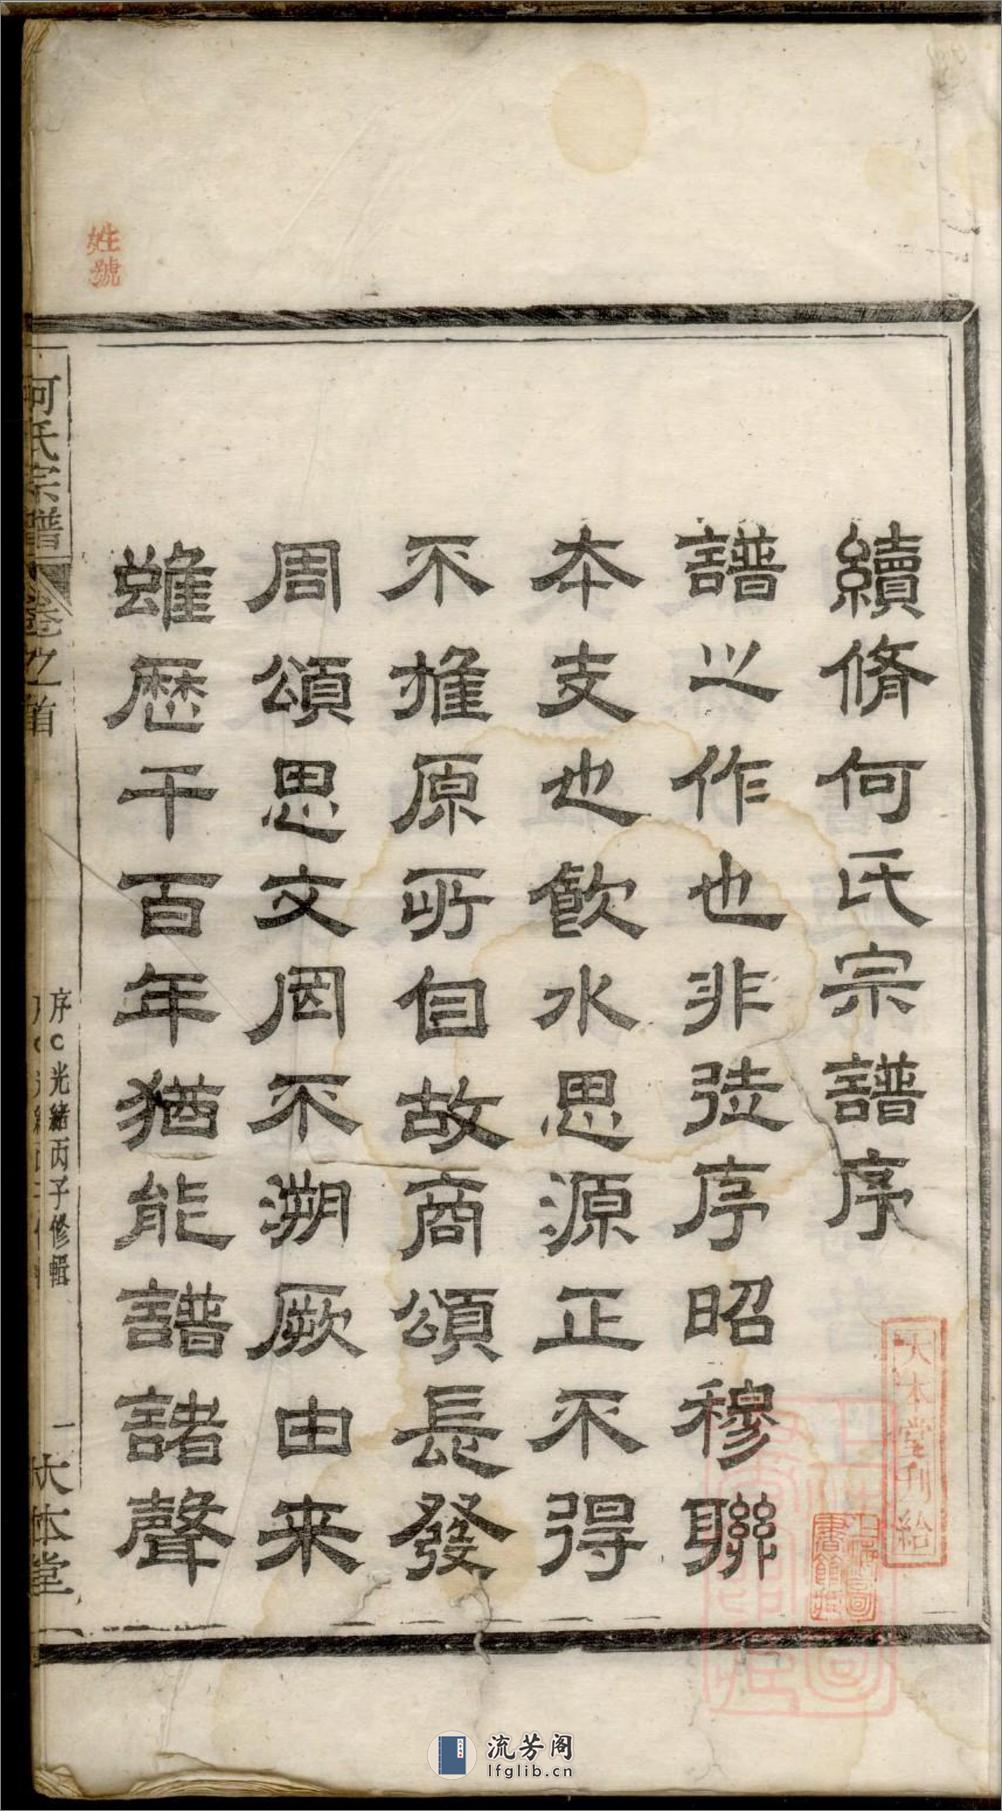 續脩何氏宗譜序
譜之作也非徒序昭穆聯
本支也飲水思源正不得
不推原所自故商頌長發
周頌思文罔不溯厥由来
雖歷千百年猶能譜諸聲
何氏宗譜
卷之首
序
光緒丙子修輯
一
大本堂
姓號
大本堂刊給
流芳阁
lfglib.cn